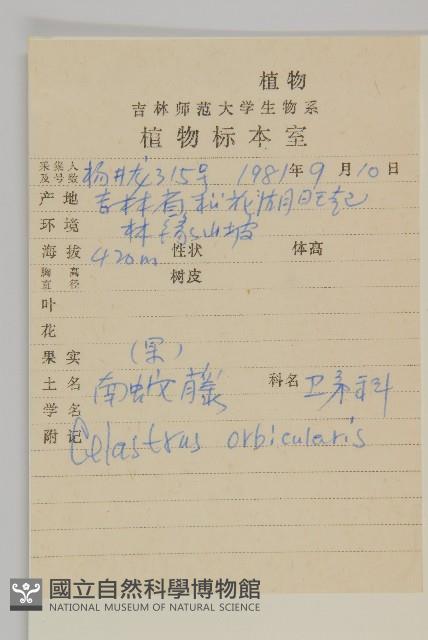 植物
吉林师范大学生物系
植物标本室
采集人及号数 杨井龙315号 1981年9月10日
产地 吉林省松花湖
环境 林缘山坡
海拔 420m 性状 体高
胸高直径 树皮
叶
花
果实 (果)
土名 南蛇藤 科名 卫矛科
学名
附记 Celastrus orbicularis
國立自然科學博物館
NATIONAL MUSEUM OF NATURAL SCIENCE